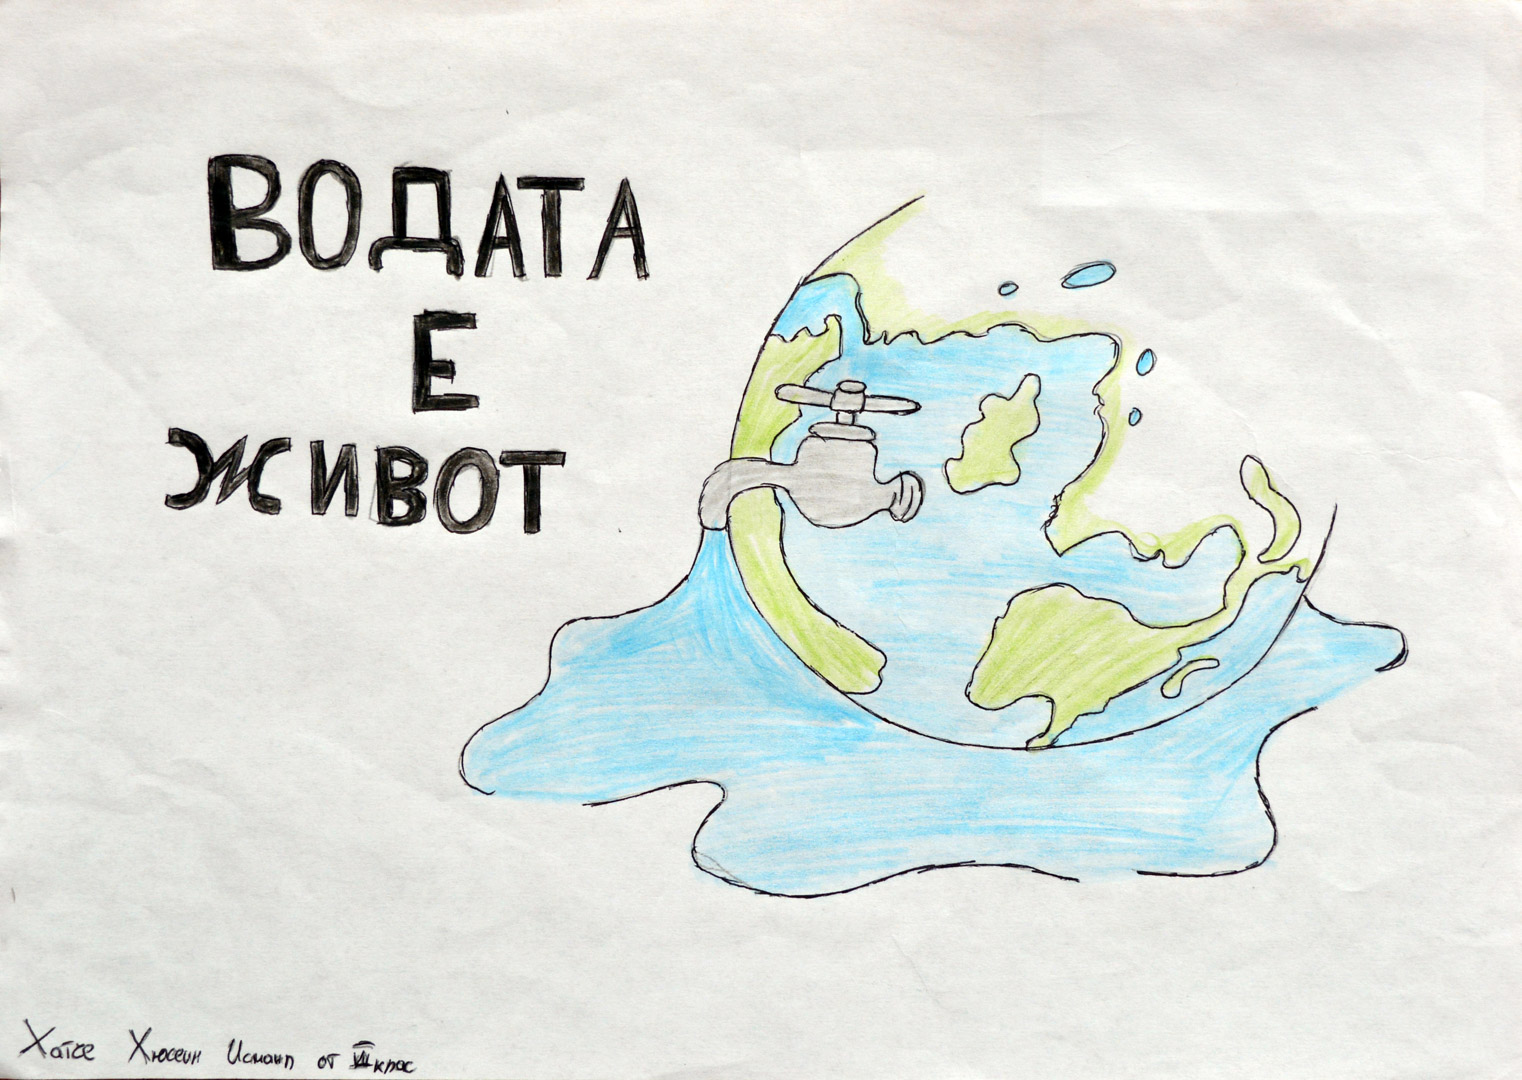 ВОДАТА
Е
ЖИВОТ
Хатче Хюсеин Исмаил от VII клас